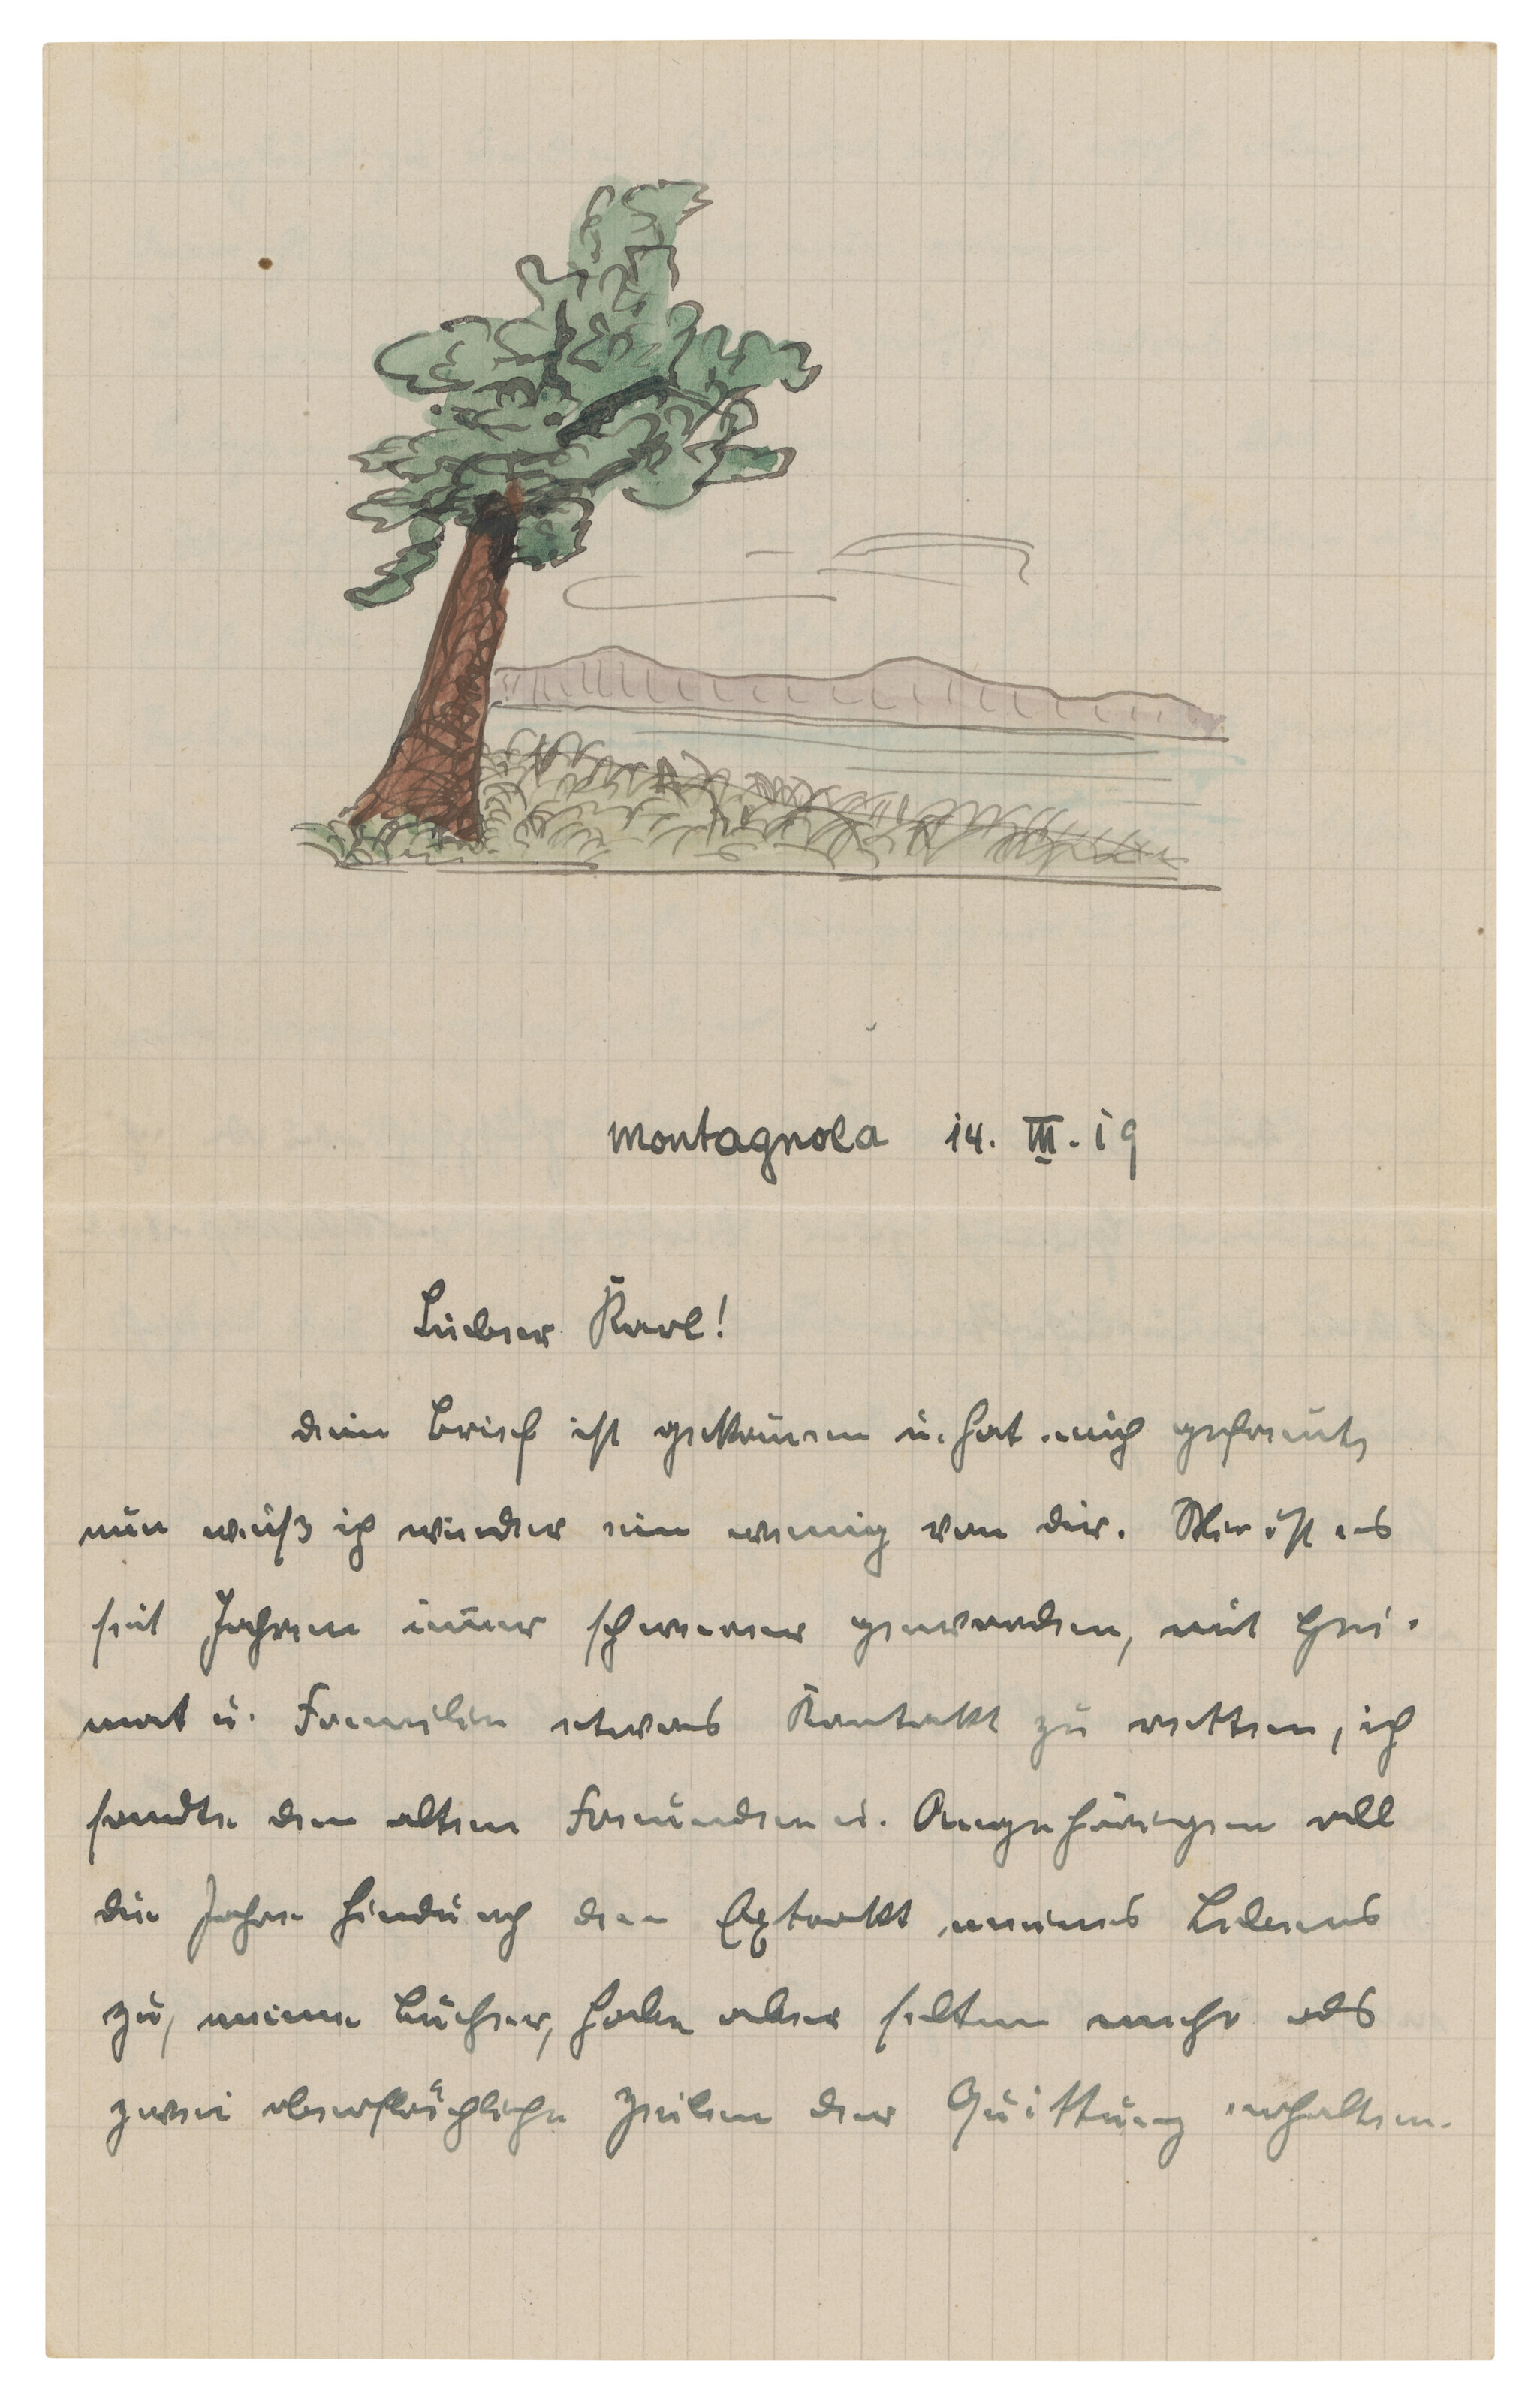 Montagnola 14. III. 19
Lieber Karl!
dein Brief ist gekom̅en u. hat mich gefreut,
nun weiß ich wieder ein wenig von dir. Mir ist es
seit Jahren im̅er schwerer geworden, mit Hei-
mat u. Familie etwas Kontakt zu retten, ich
sandte den alten Freunden u. Angehörigen all
die Jahre hindurch den Extrakt meines Lebens
zu, meine Bücher, habe aber selten mehr als
zwei oberflächliche Zeilen der Quittung erhalten.